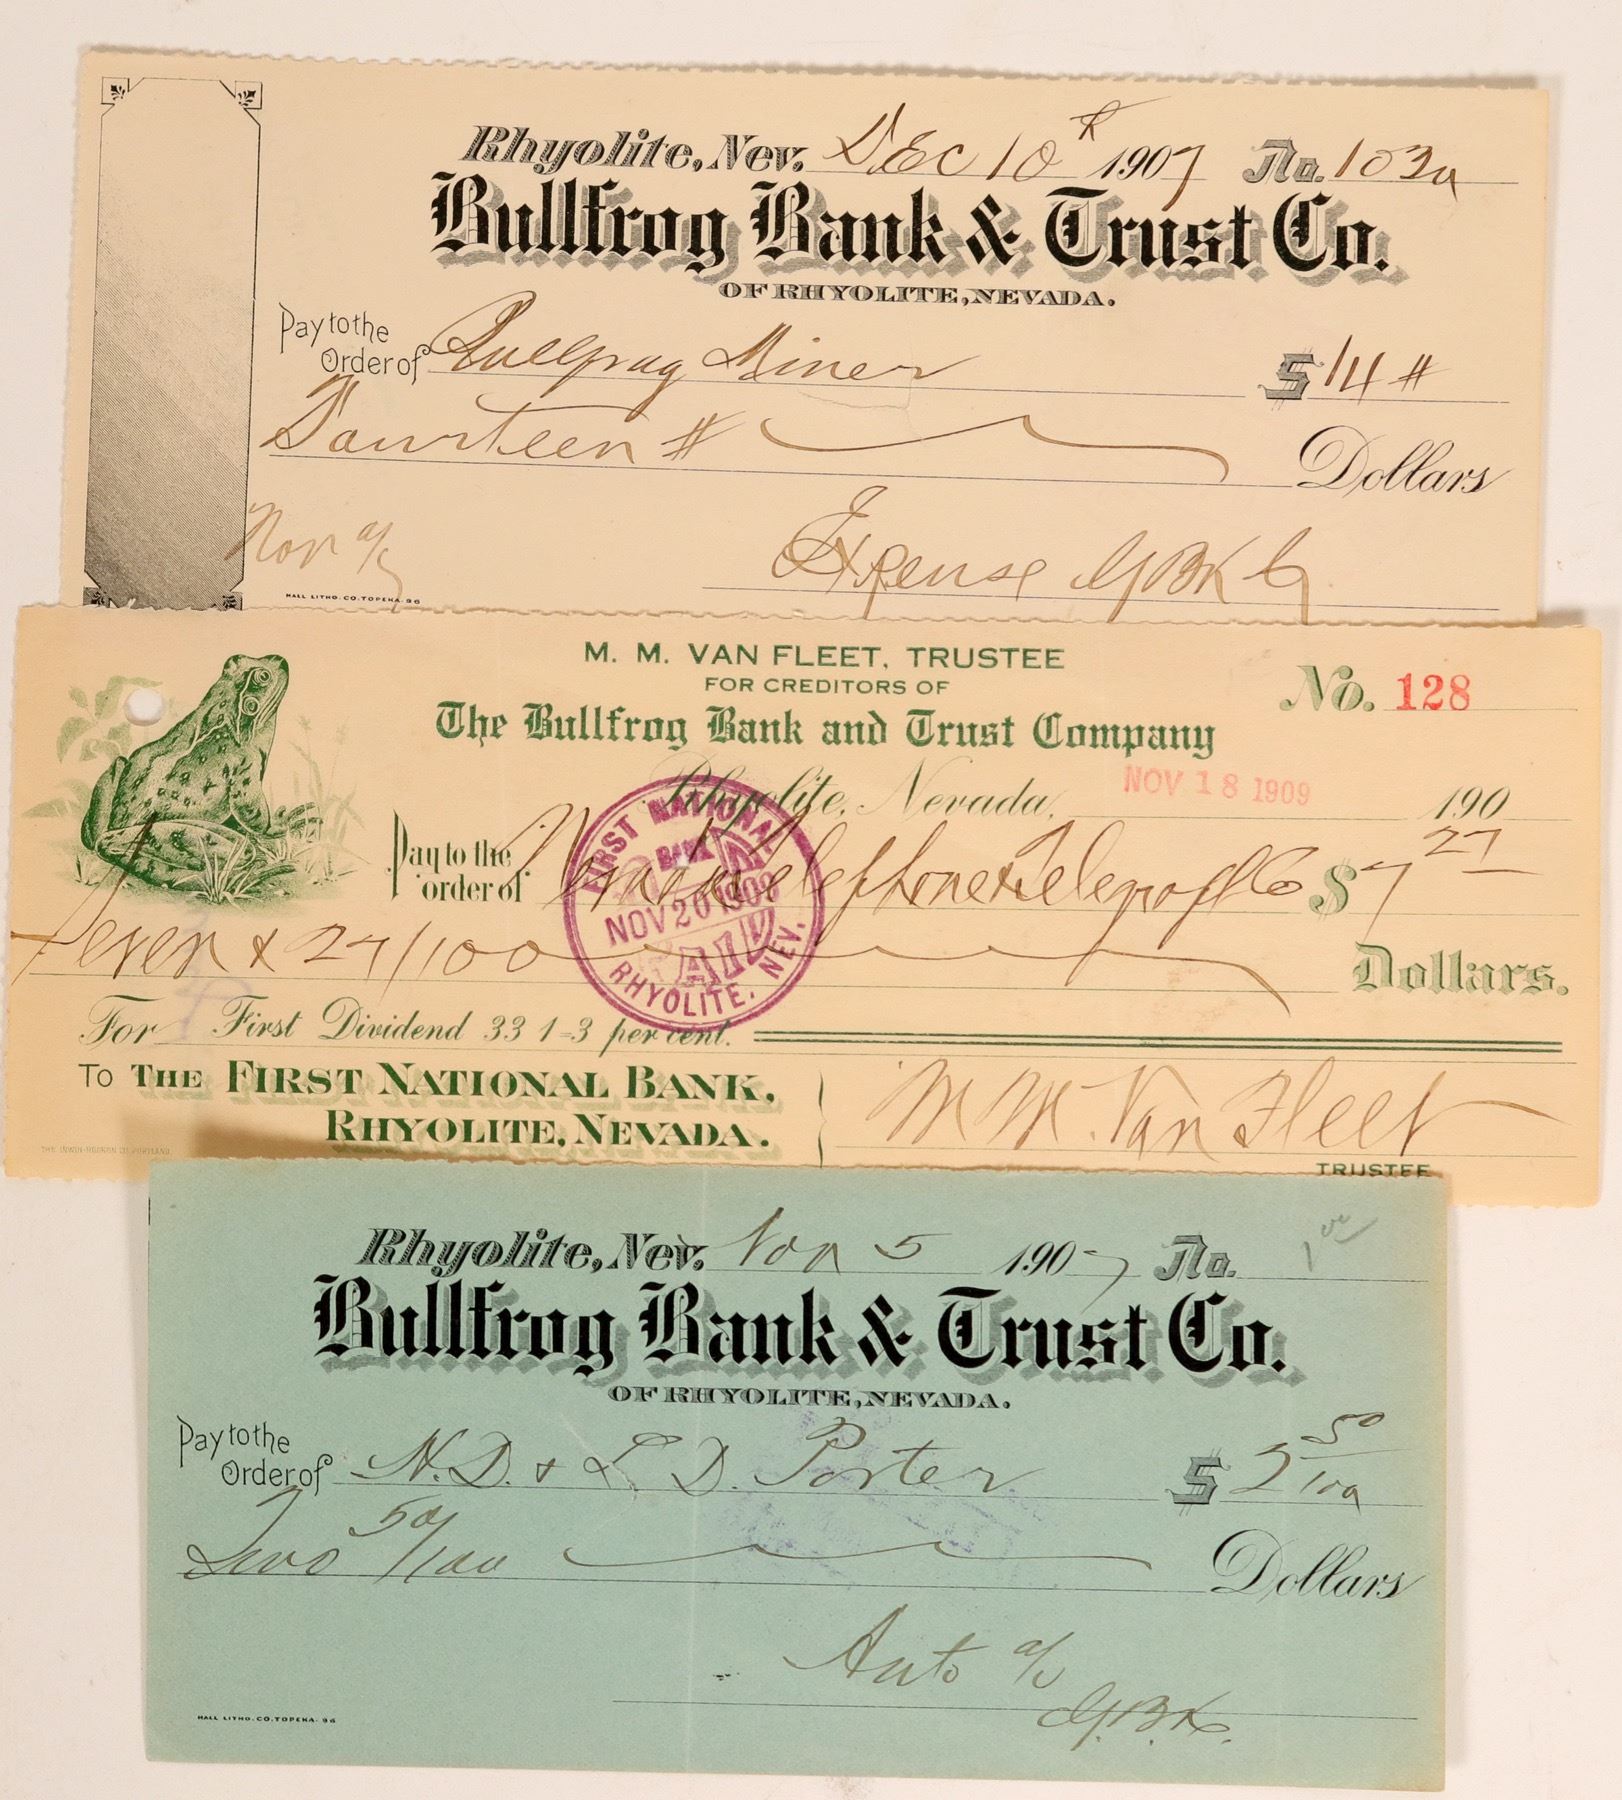 Rhyolite, Nev. Dec 10th 1907 No. 103a
Bullfrog Bank & Trust Co.
OF RHYOLITE, NEVADA.
Pay to the Order of Bullfrog Miner $ 14 #
Fourteen # Dollars
Nov a/c
Expense
HALL LITHO. CO. TOPEKA-96
M. M. VAN FLEET, TRUSTEE
FOR CREDITORS OF
No. 128
The Bullfrog Bank and Trust Company
Rhyolite, Nevada, NOV 18 1909 190
Pay to the order of Telephone & Telegraph Co $ 7 27
Seven & 27/100 Dollars.
FIRST NATIONAL BANK
PAID
NOV 20 1909
RHYOLITE, NEV.
For First Dividend 33 1-3 per cent.
To THE FIRST NATIONAL BANK,
RHYOLITE, NEVADA.
M M. Van Fleet
TRUSTEE
Rhyolite, Nev. Nov 5 1907 No. 1 00
Bullfrog Bank & Trust Co.
OF RHYOLITE, NEVADA.
Pay to the Order of N. D. & L. D. Porter $ 2 50/100
Two 50/100 Dollars
Auto a/c
G.B.K.
HALL LITHO. CO. TOPEKA-96